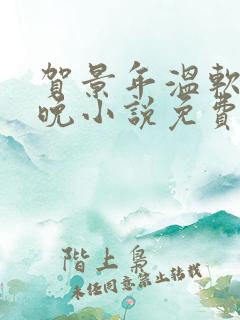 賀景年溫軟
晚小說免費
階上梟
未經同意禁止轉載